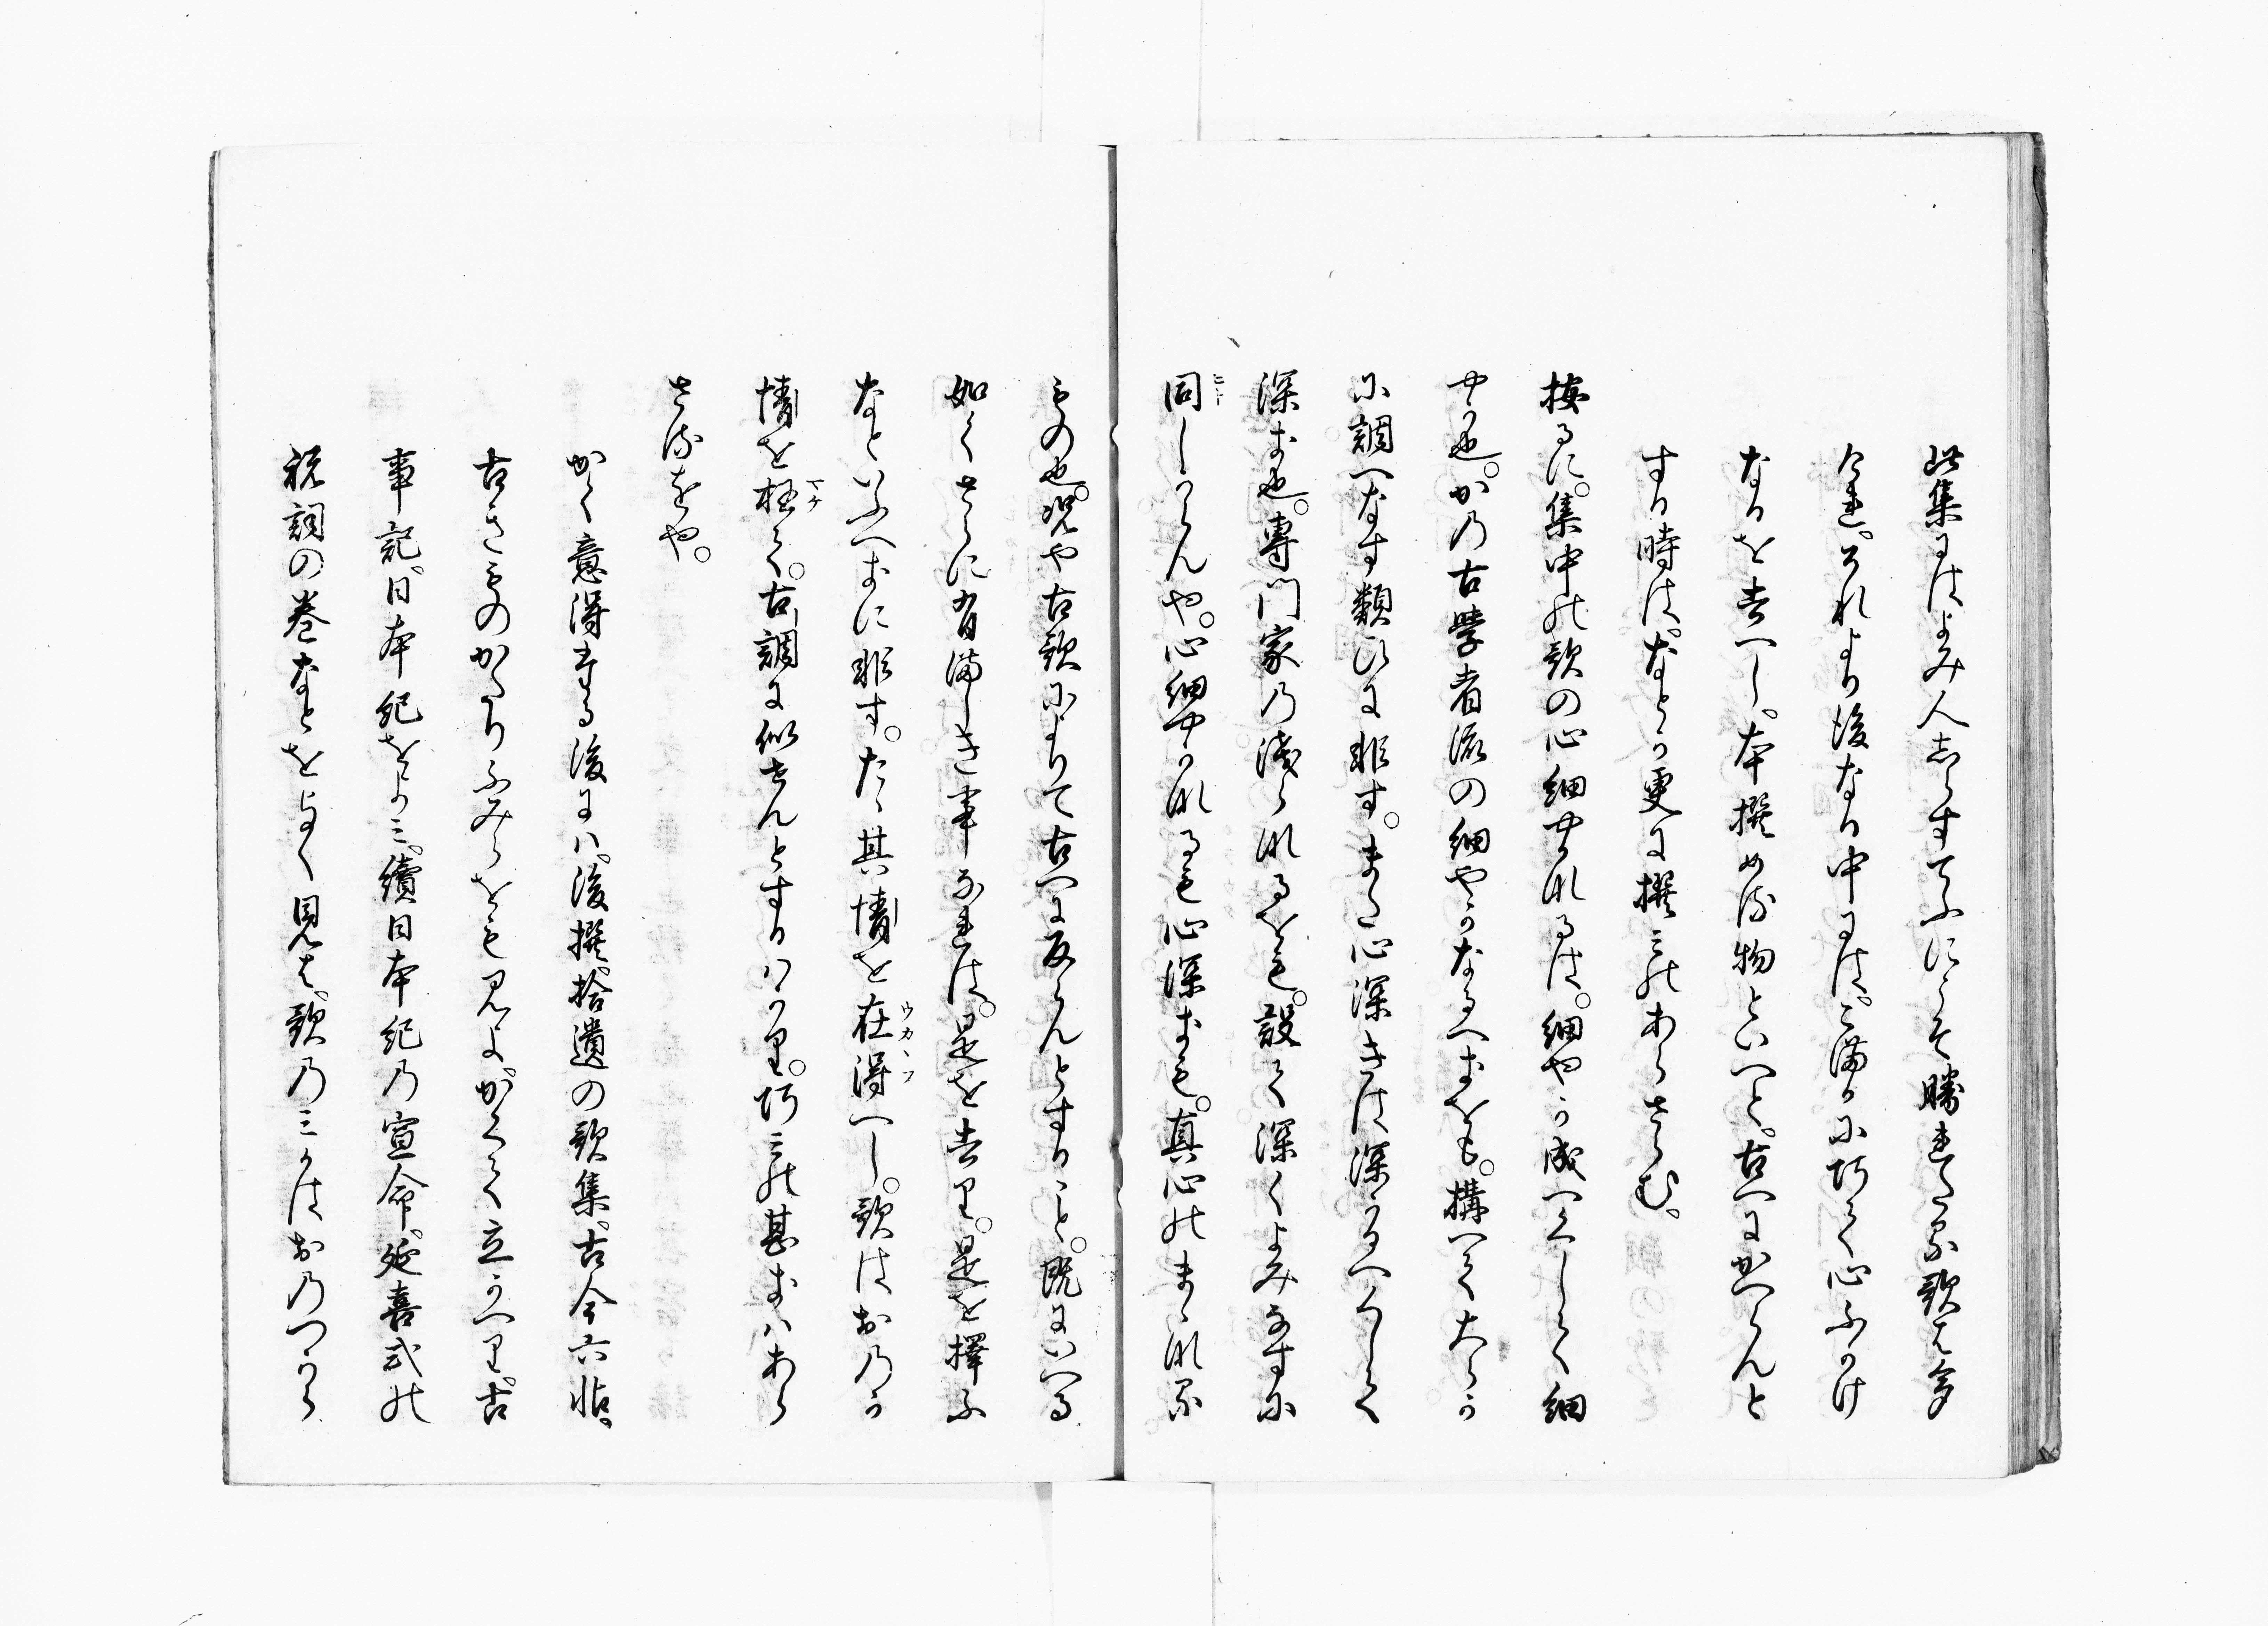 此集にはよみ人しらすてふにこそ勝れたる歌は多
今れ。それより後なる中には。こ満かに巧て心ふかけ
なるを去へし。本撰める物といへと。古へにかへらんと
する時は。なとか更に撰みのあらさらむ。
按るに。集中の歌の心細せけれるは。細やか成へくして細
せき也。かの古学者流の細やかなるへきをも。構へて大らか
に調へなす類ひに非す。またゝ心深きは深かるへくして
深き也。専門家の浅られるをも。設て深くよみなすに
同しからんや。心細せけれるも心深きも。真心のまゝなる
もの也。況や古歌によりて古へに反らんとすること。既にいへる
如くさらに有ましき事なれは。是を去り。是を擇ふ
なといふへきに非す。たゝ其情を在得へし。歌はおのか
情を枉て。古調に似せんとするはかり。巧みの甚きはあら
さるをや。
かく意得する後には。後撰。拾遺の歌集。古今六帖。
古きものかたりふみらをも見よ。かくて立かへり。古
事記。日本紀をよみ。續日本紀の宣命。延喜式の
祝詞の巻なとをよく見は。歌のみかはおのつから